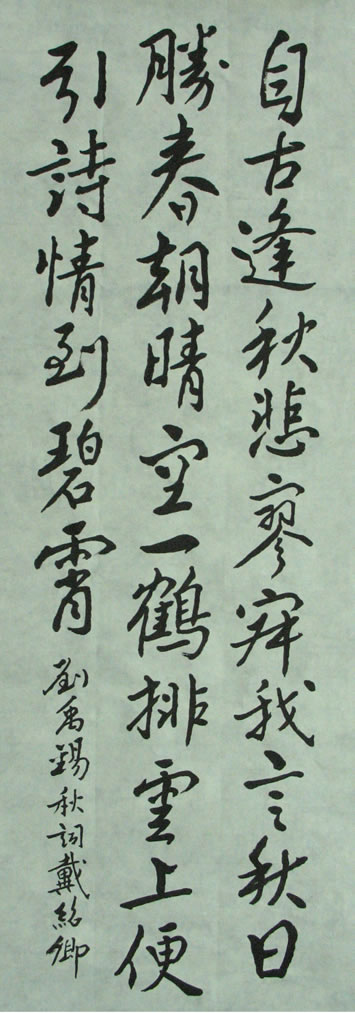 自古逢秋悲寥寂我言秋日
勝春朝晴空一鶴排雲上便
引詩情到碧霄
劉禹錫秋詞戴紹卿